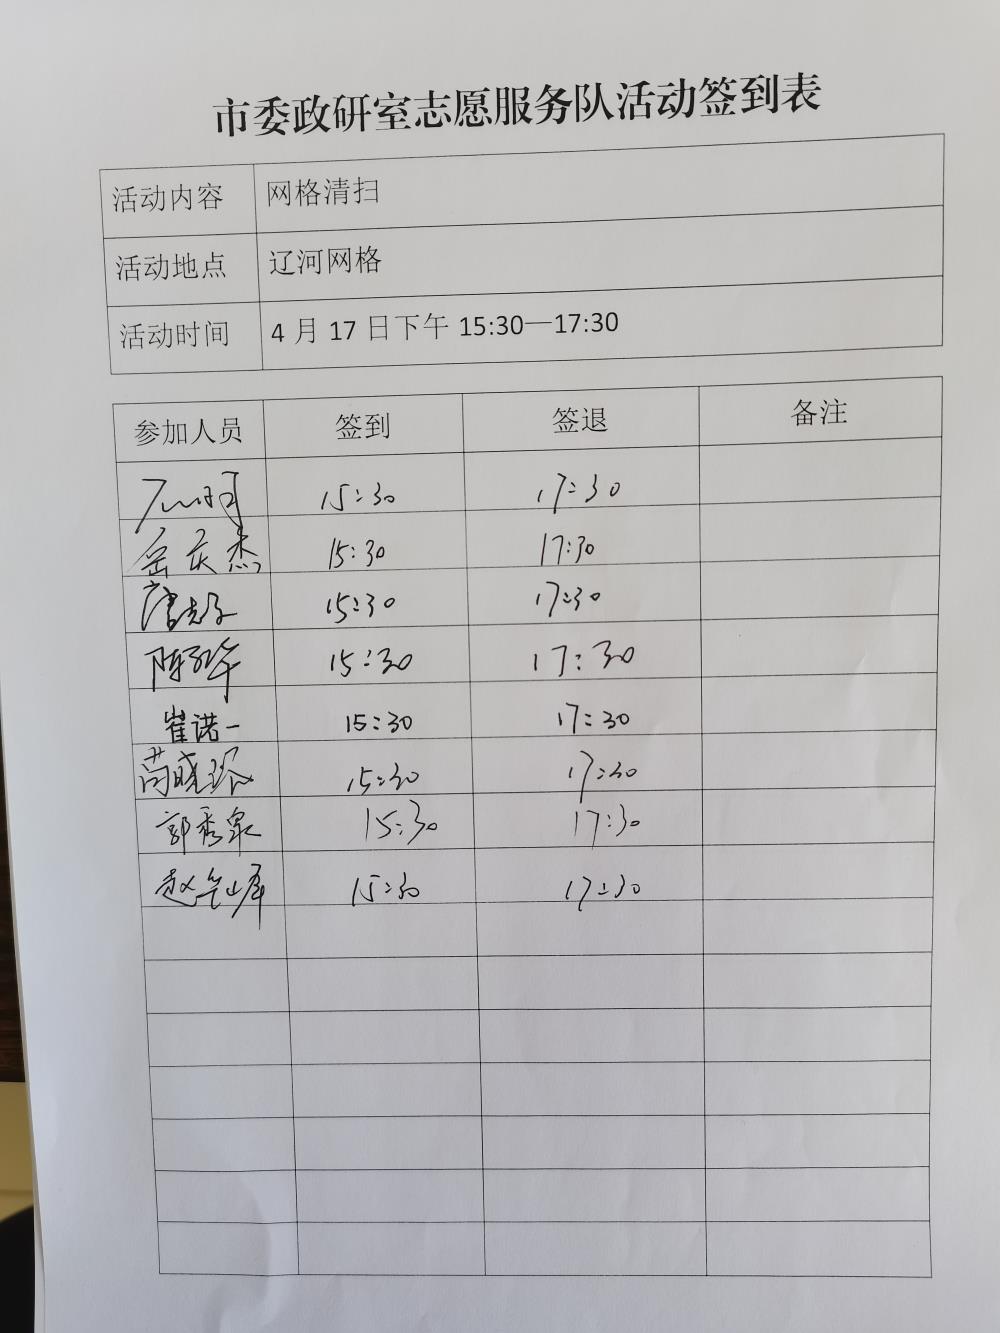 市委政研室志愿服务队活动签到表
活动内容 网格清扫
活动地点 辽河网格
活动时间 4月17日下午 15:30—17:30
参加人员 签到 签退 备注
15:30 17:30
岳庆杰 15:30 17:30
唐 15:30 17:30
陈 华 15:30 17:30
崔诺一 15:30 17:30
晓 15:30 17:30
郭秀泉 15:30 17:30
赵 库 15:30 17:30